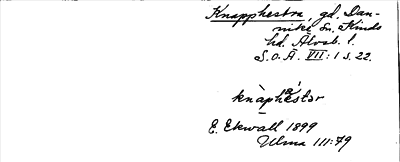 Knapphestra, gd. Dan-
nike sn. Kinds
hd. Älvsb. l.
S.O.Ä. VII:1 s. 22.
knàphéstər
E. Ekwall 1899
Ulma 111:79